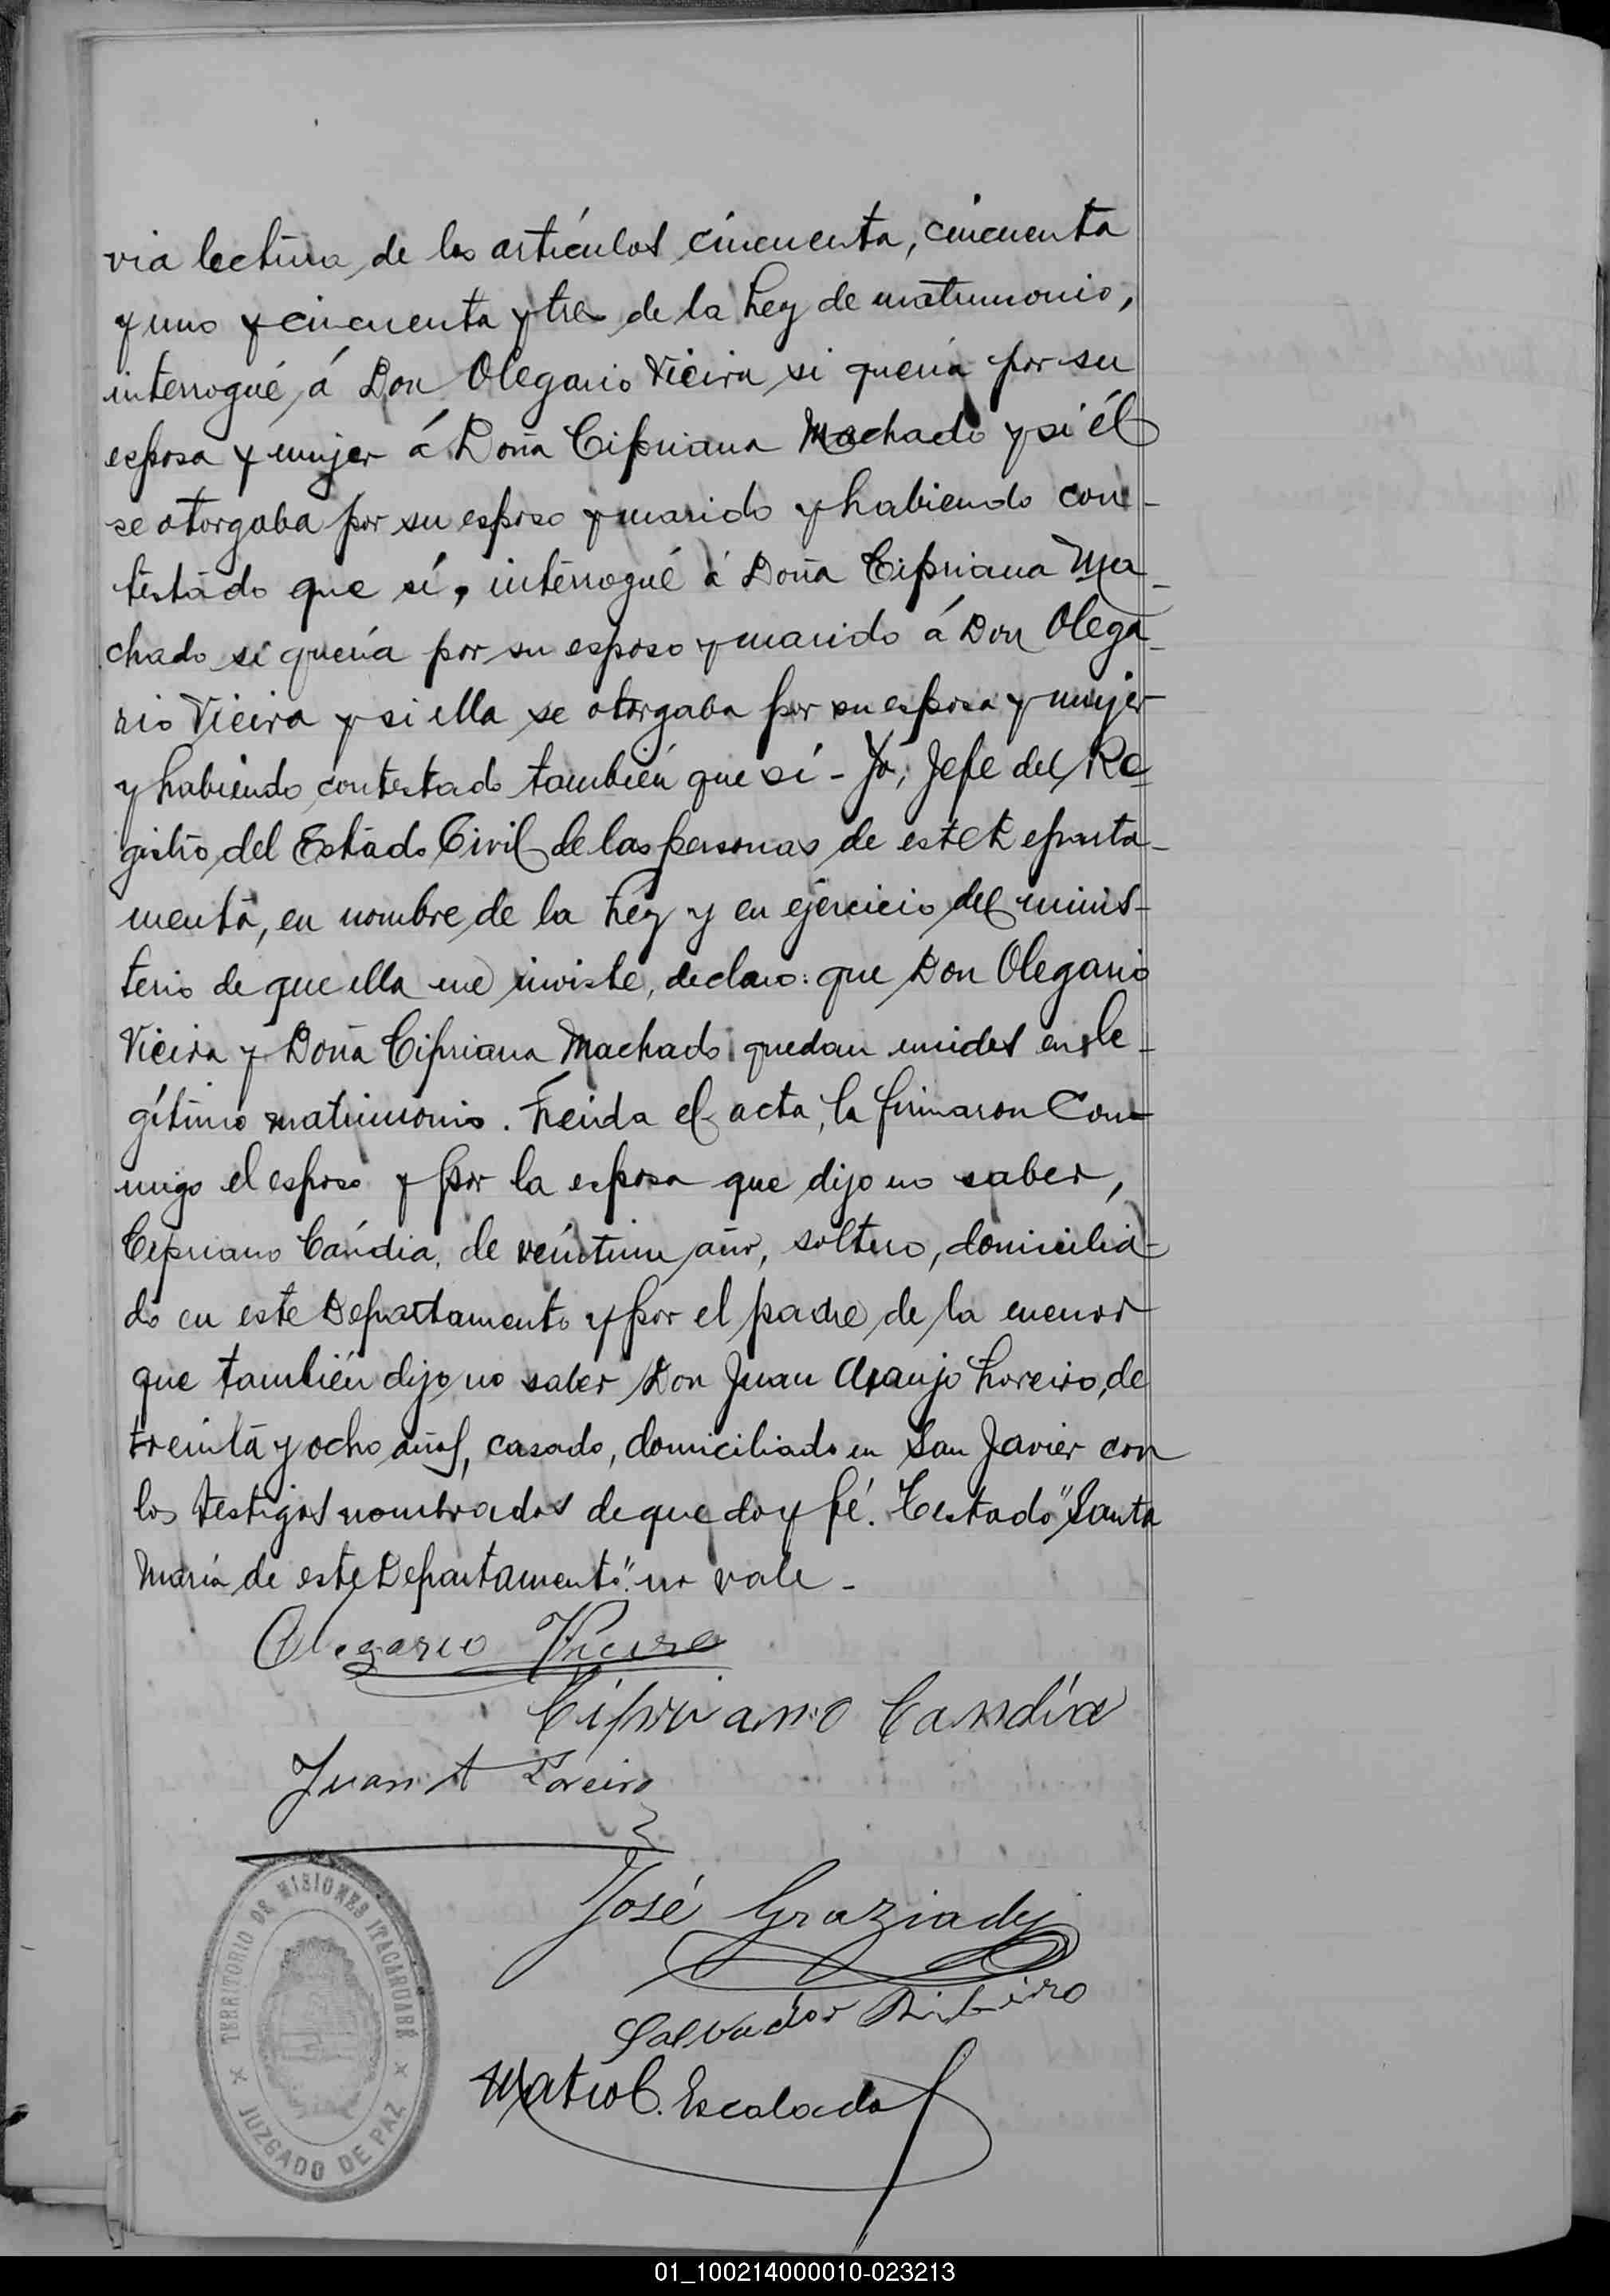 via lectura de los artículos cincuenta, cincuenta
y uno y cincuenta y tres de la Ley de matrimonio,
interrogué á Don Olegario Vieira si quería por su
esposa y mujer á Doña Cipriana Machado y si él
se otorgaba por su esposo y marido y habiendo con-
testado que sí, interrogué á Doña Cipriana Ma-
chado si quería por su esposo y marido á Don Olega-
rio Vieira y si ella se otorgaba por su esposa y mujer
y habiendo contestado también que sí - Yo, Jefe del Re-
gistro del Estado Civil de las personas de este Departa-
mento, en nombre de la Ley y en ejercicio del minis-
terio de que ella me inviste, declaro: que Don Olegario
Vieira y Doña Cipriana Machado quedan unidos en le-
gítimo matrimonio. Leida el acta, la firmaron Con-
migo el esposo y por la esposa que dijo no saber,
Cipriano Cándia, de veintiun año, soltero, domicilia-
do en este Departamento y por el padre de la menor
que también dijo no saber Don Juan Araujo Loreiro, de
treinta y ocho años, casado, domiciliado en San Javier con
los testigos nombrados de que doy fé. Testado "Santa
María de este Departamento". no vale -
Olegario Vieira
Cipriano Candia
Juan A Loreiro
José Graziady
Salvador Ribeiro
C. Escalada
TERRITORIO DE MISIONES ITACARUARÉ
JUZGADO DE PAZ
01_100214000010-023213